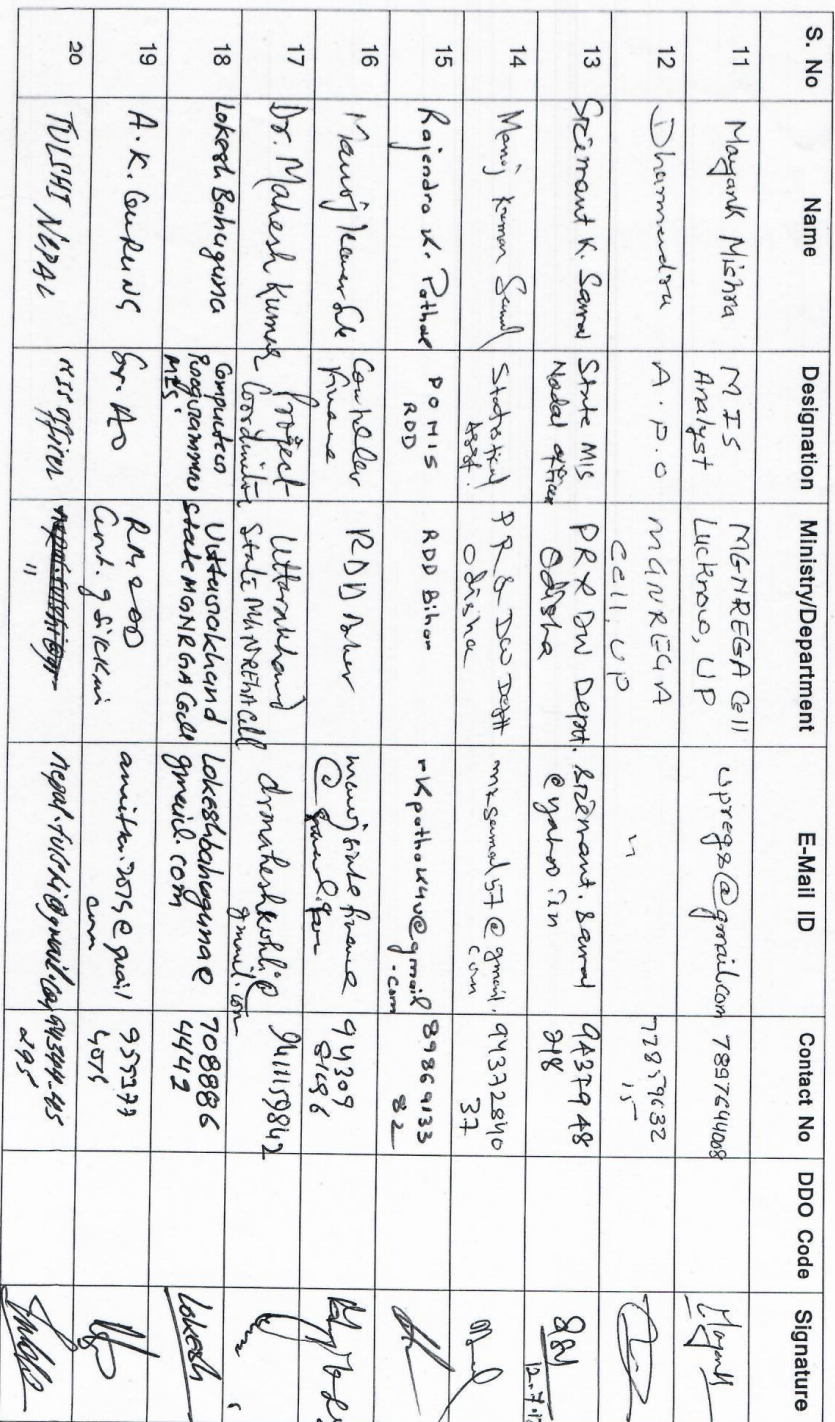 S. No Name Designation Ministry/Department E-Mail ID Contact No DDO Code Signature
11 Mayank Mishra MIS Analyst MGNREGA Cell Lucknow, UP upregs@gmail.com 7897644008 Mayank
12 Dharmendra A.P.O MGNREGA Cell, UP "
13 Srimant K. Samal State MIS Nodal officer PR & DW Dept. Odisha srimant.samal@yahoo.in 9437948218 12.7.
14 Manoj Kumar Samal Statistical Asst. PR & DW Deptt Odisha mksamal57@gmail.com 9437284037
15 Rajendra K. Pathak PO MIS RDD RDD Bihar 8986913382
16 Manoj Finance RDD 9430981686
17 Dr. Mahesh Kumar Project Coordinator Uttarakhand State MGNREGA Cell gmail.com 9411159842
18 Lokesh Bahuguna Computer Programmer MIS Uttarakhand State MGNREGA Cell lokeshbahuguna@gmail.com 7088864442 Lokesh
19 A.K. Gurung Sr. AO Govt. of Sikkim
20 TULSHI NEPAL MIS officer " nepal.tulshi@gmail.com